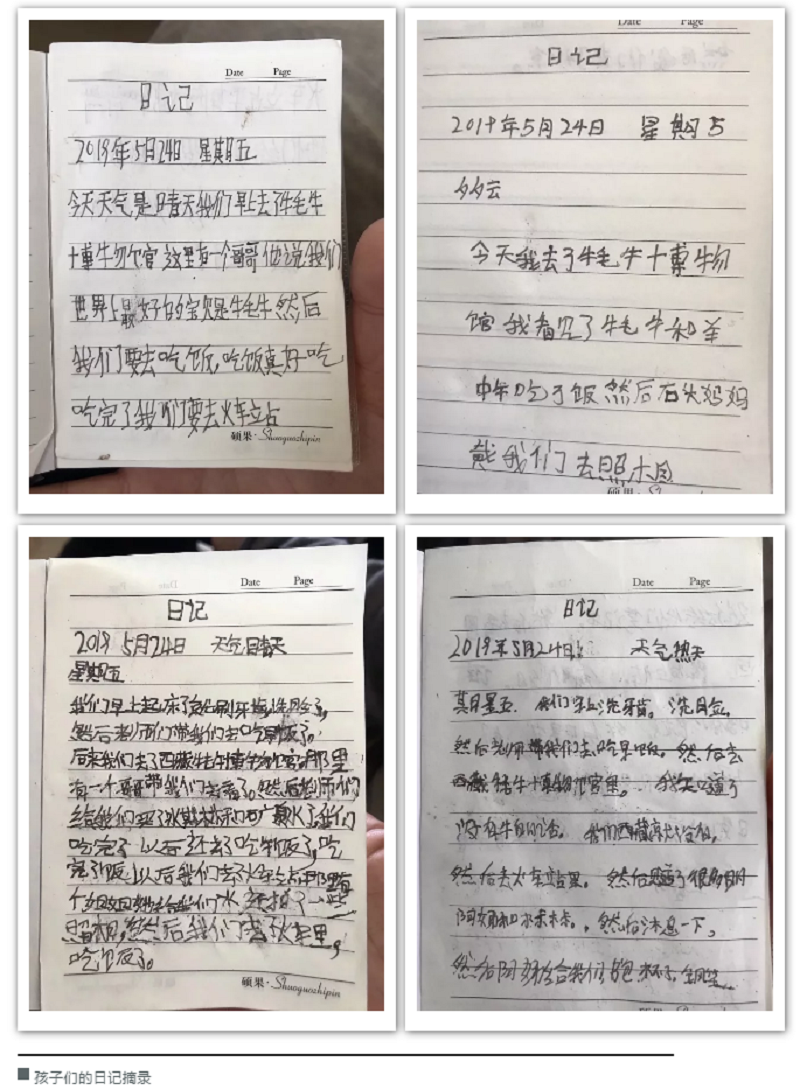 Date Page
日记
2019年5月24日 星期五
今天天气是晴天我们早上去了牦牛
博物馆 这里有一个哥哥他说我们
世界上最好的宝贝是牦牛然后
我们要去吃饭,吃饭真好吃
吃完了我们要去火车立占
硕果·Shuoguozhipin
Date Page
日记
2019年5月24日 星期5
多云
今天我去了牦牛博物
馆我看见了牦牛和羊
中午吃了饭然后石头妈妈
戴我们去照相
硕果·S
Date Page
日记
2019 5月24日 天气晴天
星期五
我们早上起床了刷牙 洗脸了,
然后老师们带我们去吃早饭了。
后来我们去了西藏牦牛博物馆那里
有一个哥哥带我们去看了。然后老师们
给我们买了冰 和矿泉水了我们
吃完了以后还去了吃中饭了,吃
完了饭以后我们去火车占那里有
个姐姐 给我们水 还拍了一些
照相,然后我们 火车里,
吃饭了。
硕果·Shuoguozhipin
Date Page
日记
2019年5月24日 天气热天
其月星五 我们早上洗牙齿。洗脸。
然后老师带我们去吃早饭。然后去
西藏牦牛博物馆里。 我知道了
没有牛的话。 我们西藏 没有。
然后去火车站里。 然后 了很多朋
阿姨和 。 然后休息一下。
然后阿姨给我们
孩子们的日记摘录